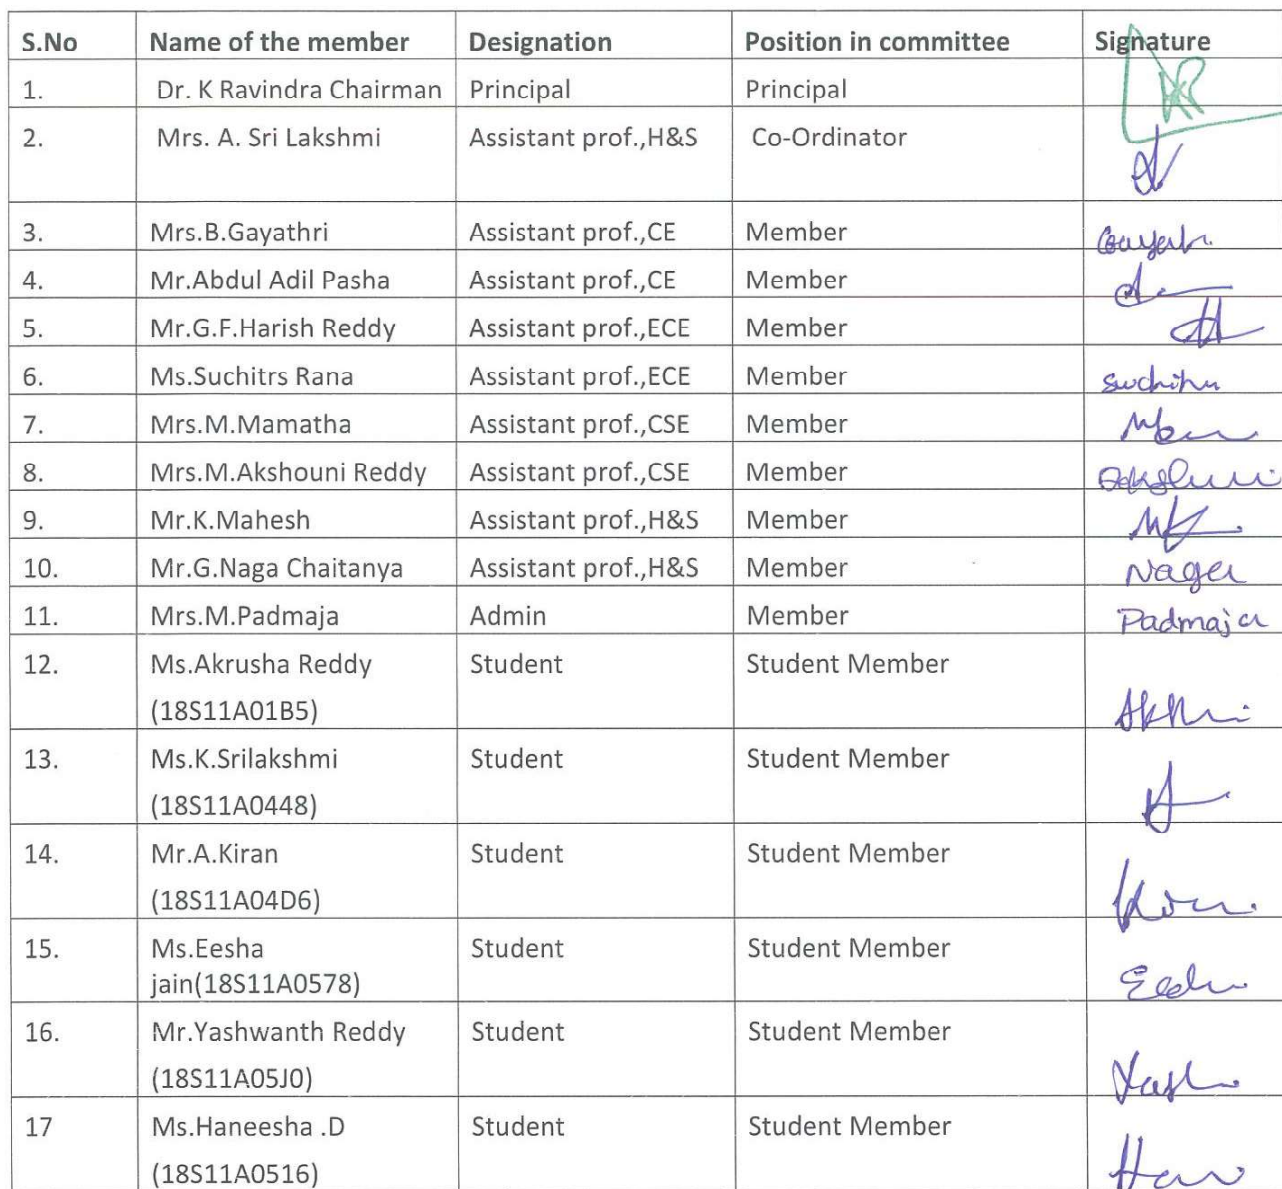 S.No Name of the member Designation Position in committee Signature
1. Dr. K Ravindra Chairman Principal Principal
2. Mrs. A. Sri Lakshmi Assistant prof.,H&S Co-Ordinator
3. Mrs.B.Gayathri Assistant prof.,CE Member
4. Mr.Abdul Adil Pasha Assistant prof.,CE Member
5. Mr.G.F.Harish Reddy Assistant prof.,ECE Member
6. Ms.Suchitrs Rana Assistant prof.,ECE Member
7. Mrs.M.Mamatha Assistant prof.,CSE Member
8. Mrs.M.Akshouni Reddy Assistant prof.,CSE Member
9. Mr.K.Mahesh Assistant prof.,H&S Member
10. Mr.G.Naga Chaitanya Assistant prof.,H&S Member
11. Mrs.M.Padmaja Admin Member Padmaja
12. Ms.Akrusha Reddy Student Student Member
(18S11A01B5)
13. Ms.K.Srilakshmi Student Student Member
(18S11A0448)
14. Mr.A.Kiran Student Student Member
(18S11A04D6)
15. Ms.Eesha Student Student Member
jain(18S11A0578)
16. Mr.Yashwanth Reddy Student Student Member
(18S11A05J0)
17 Ms.Haneesha .D Student Student Member
(18S11A0516)